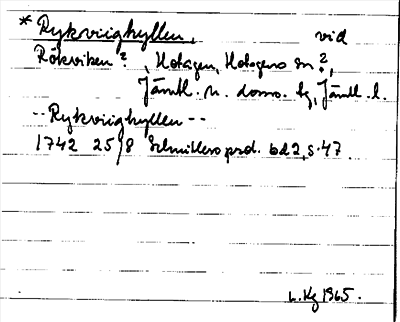 * Rykvriighyllen, vid
Rökviken? , Hotagen, Hotagens sn?,
Jämtl. n. doms. tg, Jämtl. l.
-- Rykvriighyllen --
1742 25/8 Schnitlers prot. bd 2, s. 47.
L. Kg 1965.